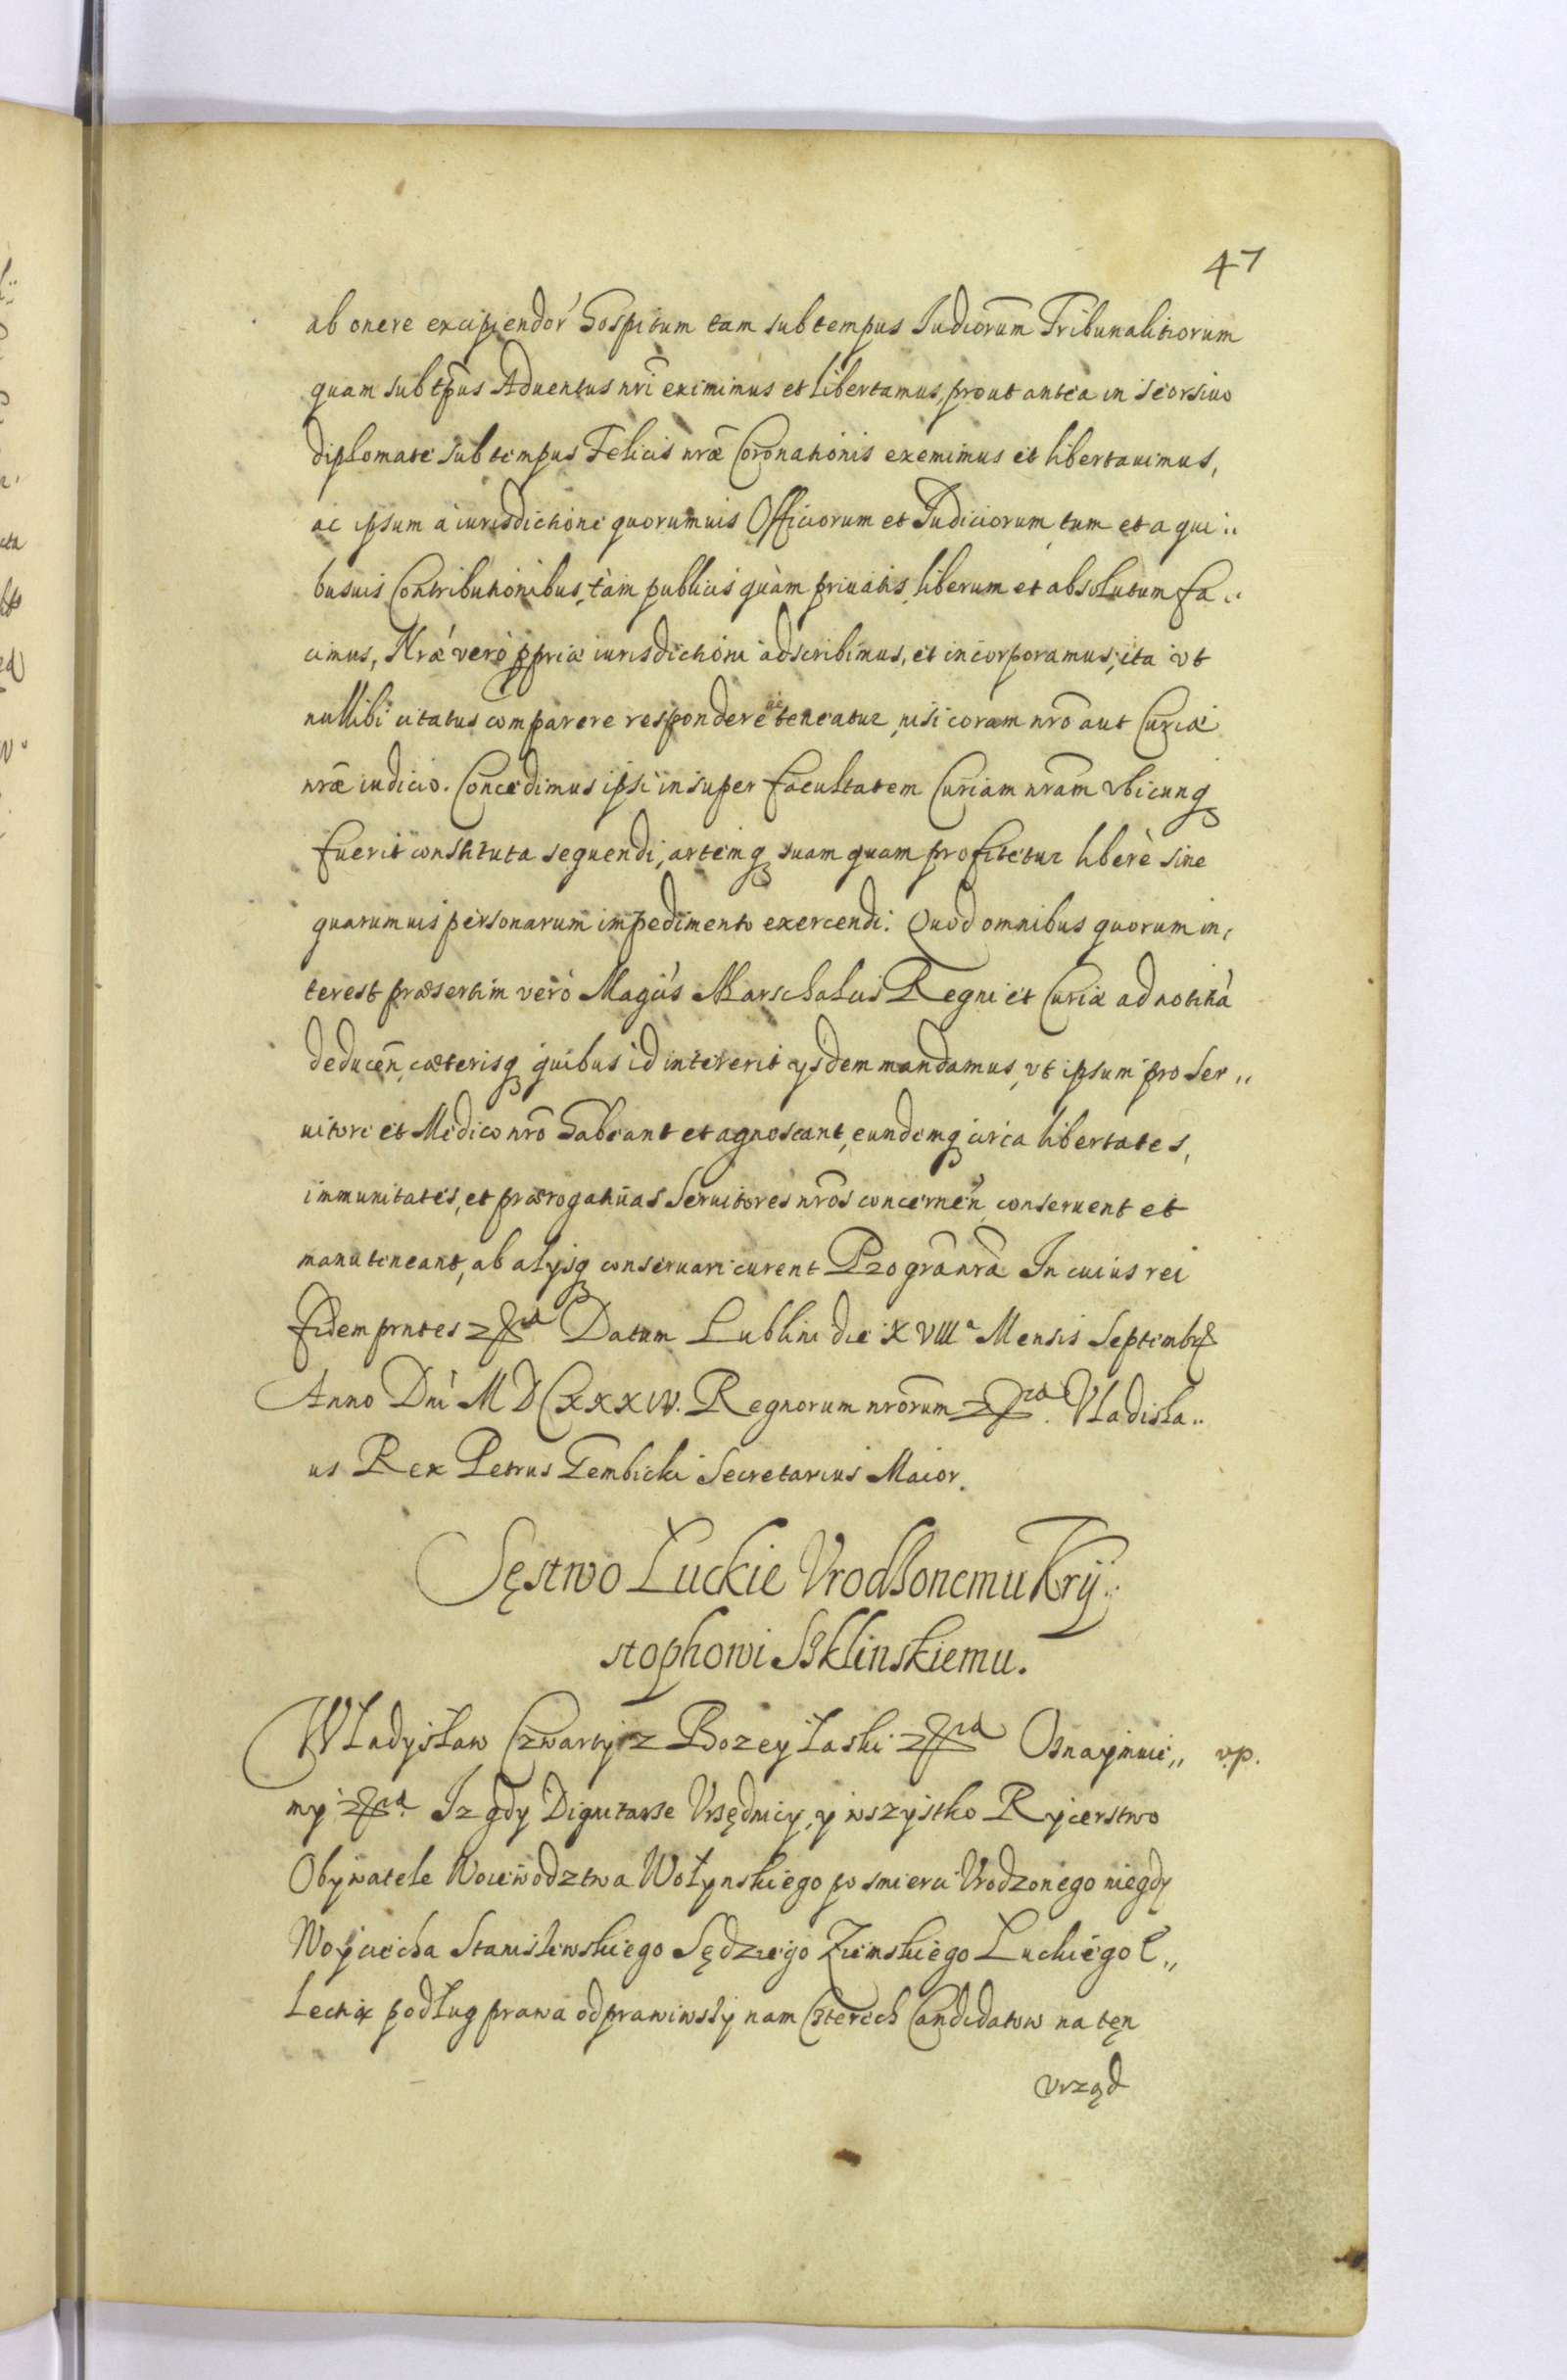 47
ab onere excipiendor̃ hospitum tam sub tempus Iudiorũm Tribunalitiorum
quam sub tp̃us Aduentus nrĩ eximimus et libertamus, prout antea in seorsiuo
diplomate sub tempus Felicis nræ̃ Coronationis exemimus et libertauimus,
ac ipsum a iurisdictione quorumuis Officiorum et Iudiciorum, tum et a qui..
busuis Contributionibus, tàm publicis quàm priuatis, liberum et absolutum fa..
cimus, Nræ verò ppriæ iurisdictioni adscribimus, et incorporamus, ita vt
nullibi citatus comparere respondere ue teneatur, nisi coram nrõ aut Curiæ
nræ̃ iudicio. Concedimus ipsi insuper facultatem Curiam nrãm vbicunq
fuerit constituta sequendi, artemq suam quam profitetur liberè sine
quarumuis personarum impedimento exercendi. Quod omnibus quorum in,
terest præsertim verò Magcis Marschalcis Regni et Curiæ ad notitiã
deducen̄, cæterisq quibus id intererit ysdem mandamus, vt ipsum pro Ser,,
uitore et Medico nrõ habeant et agnoscant, eundemq circa libertates,
immunitates, et prærogatiuas Seruitores nrõs concernen̄, conseruent et
manuteneant, ab alysq conseruari curent Pro grã nrã In cuius rei
fidem prntes etc. Datum Lublini die XVIIIa Mensis Septembris
Anno Dni MDCXXXIV. Regnorum nrõrum etc. Vladisla..
us Rex Petrus Gembicki Secretarius Maior.
Sęstwo Łuckie Vrodzonemu Krÿ..
stophowi Szklinskiemu.
Władysław Czwarty z Bozey Łaski etc. Osnaymuie,, v.p.
my etc. Iz gdy Dignitarze Vrzędnicy, y wszystko Rycerstwo
Obywatele Woiewodztwa Wołynskiego po smierci Vrodzonego niegdy
Woyciecha Staniszewskiego Sędziego Ziemskiego Łuckiego E,,
lectią podług prawa odprawiwszy nam Czterech Candidatow na tęn
vrząd